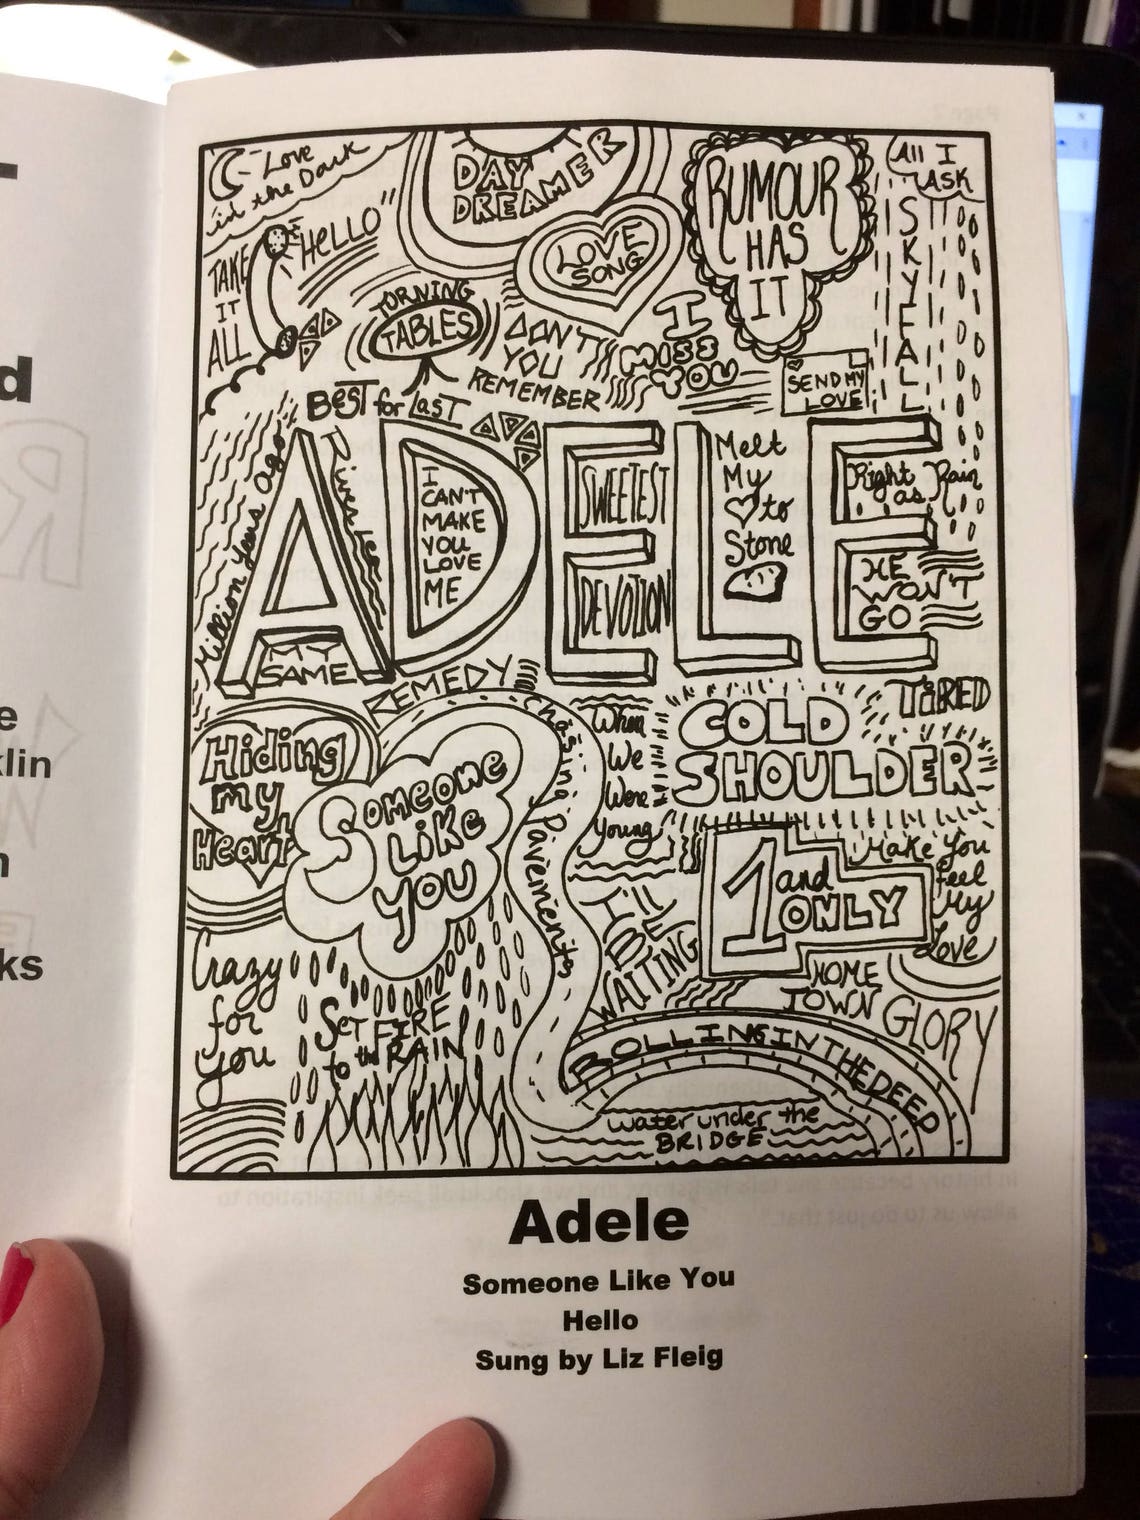 Love
in the Dark
DAY
DREAMER
RUMOUR
HAS
IT
All I
ASK
HELLO"
TAKE
IT
ALL
LOVE
SONG
SKYFALL
TURNING
TABLES
DON'T
YOU
REMEMBER
I
MISS
YOU
SEND MY
LOVE
BEST for LAST
ADELE
Million Years Ago
River Lea
I
CAN'T
MAKE
YOU
LOVE
ME
SWEETEST
DEVOTION
Melt
My
♡ to
Stone
Right
as Rain
HE
WON'T
GO
MY
SAME
REMEDY
Chasing Pavements
When
We
Were
Young
COLD
SHOULDER
TiRED
Hiding
my
Heart
SOMEONE
LiKE
YOU
1 and
ONLY
Make You
Feel
My
Love
I'll
BE
WAITING
Crazy
for
you
SET FIRE
to the RAIN
HOME
TOWN GLORY
ROLLING IN THE DEEP
water under the
BRIDGE
d
e
klin
n
ks
Adele
Someone Like You
Hello
Sung by Liz Fleig